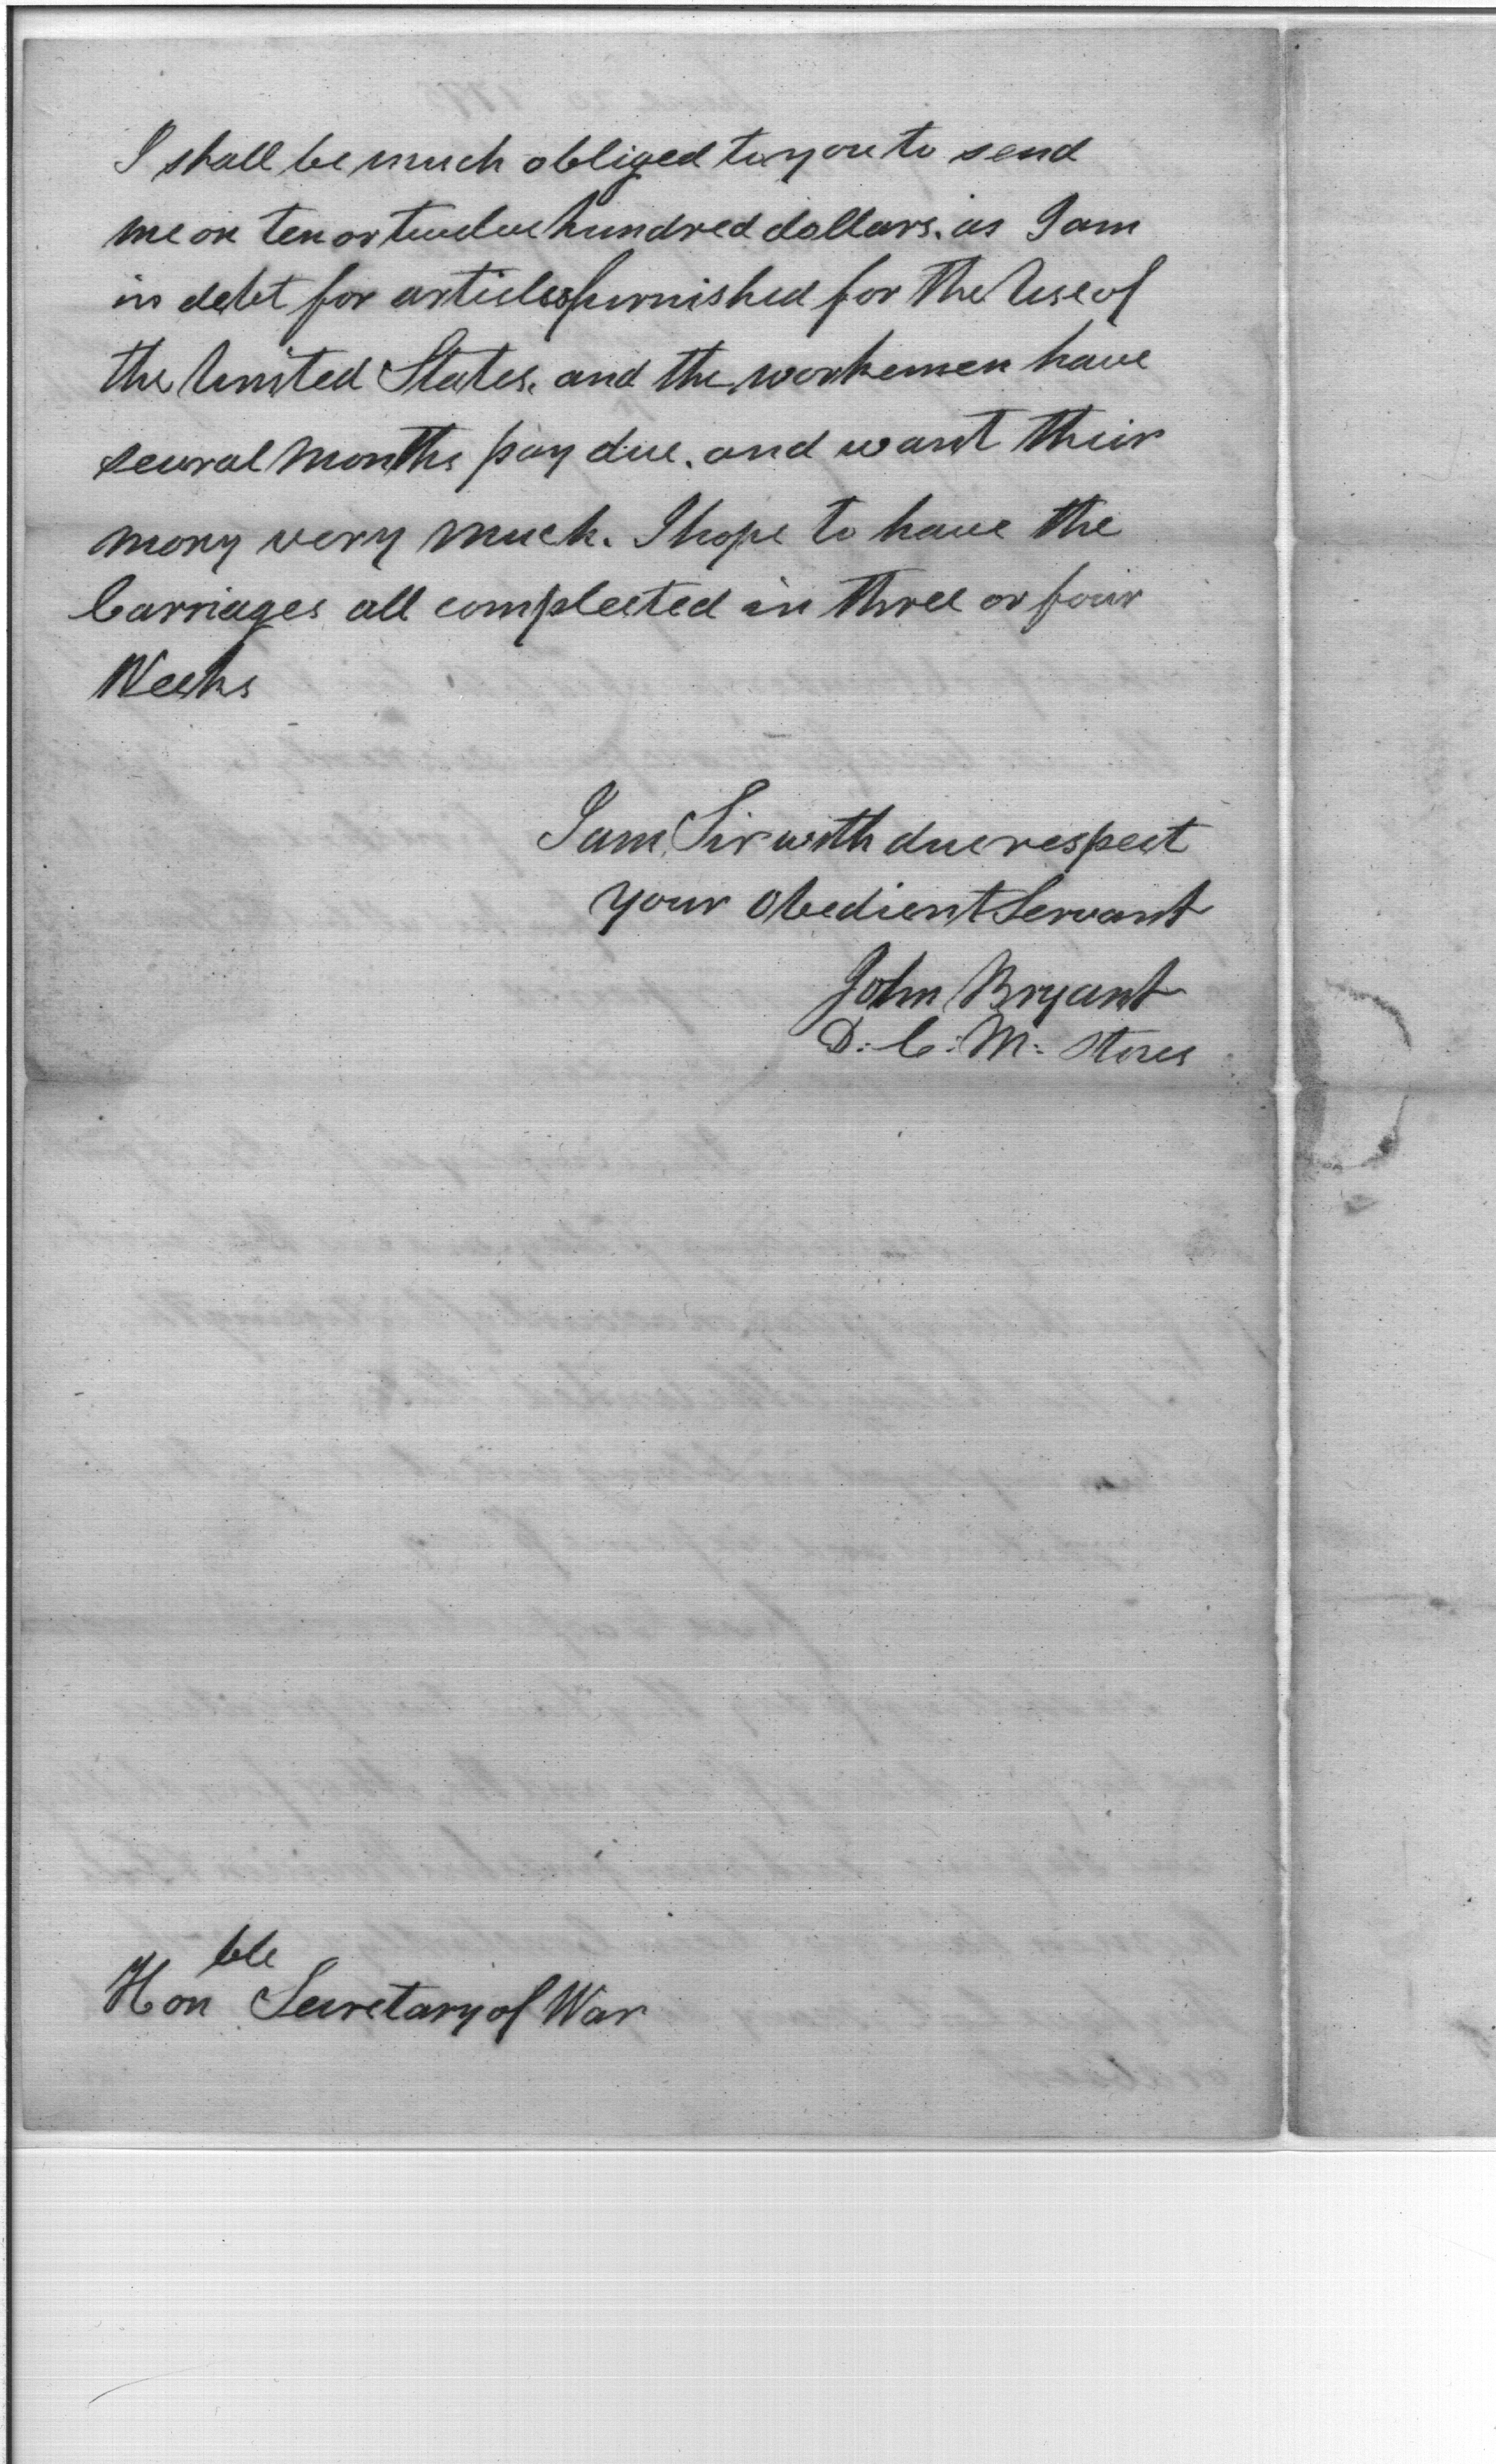 I shall be much obliged to you to send
me on ten or twelve hundred dollars. as I am
in debt for articles furnished for the Use of
the United States. and the workemen have
several Months pay due. and want their
mony very much. I hope to have the
Carriages all compleeted in three or four
Weeks
I am, Sir with due respect
your Obedient Servant
John Bryant
D: C: M: Stores
Honble Secretary of War